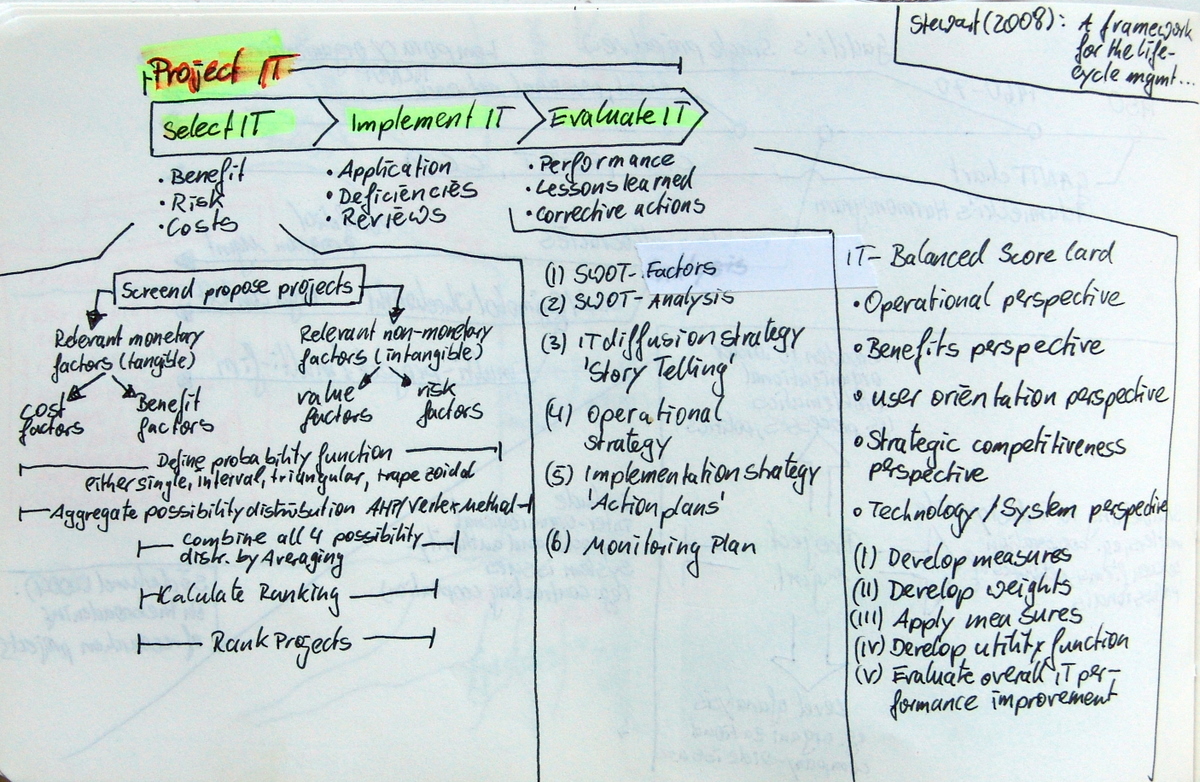 Stewart (2008): A framework
for the life-
cycle mgmt...
Project IT
Select IT
Implement IT
Evaluate IT
• Benefit
• Risk
• Costs
• Application
• Deficiencies
• Reviews
• Performance
• Lessons learned
• corrective actions
Screend propose projects
Relevant monetary
factors (tangible)
Relevant non-monetary
factors (intangible)
cost
factors
Benefit
factors
value
factors
risk
factors
Define probability function
either single, interval, triangular, trapezoidal
Aggregate possibility distribution AHP/Vertex method
combine all 4 possibility
distr. by Averaging
Calculate Ranking
Rank Projects
(1) SWOT-Factors
(2) SWOT-Analysis
(3) IT diffusion strategy
'Story Telling'
(4) Operational
strategy
(5) Implementation strategy
'Action plans'
(6) Monitoring Plan
IT-Balanced Score Card
• Operational perspective
• Benefits perspective
• user orientation perspective
• Strategic competitiveness
perspective
• Technology/System perspective
(I) Develop measures
(II) Develop weights
(III) Apply measures
(iv) Develop utility function
(v) Evaluate overall IT per-
formance improvement